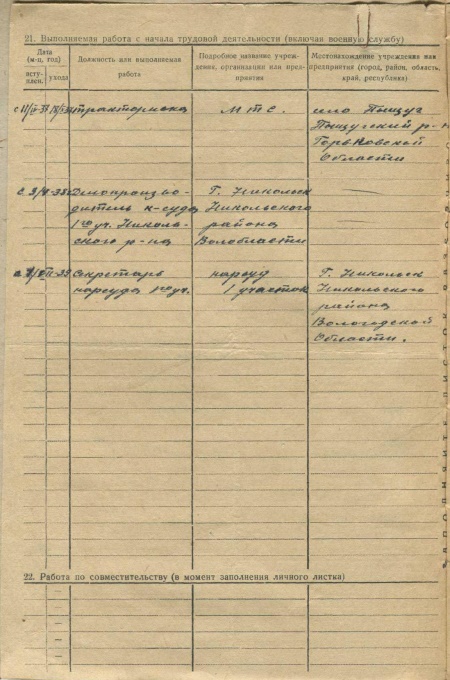 21. Выполняемая работа с начала трудовой деятельности (включая военную службу)
Дата
(м-ц, год)
всту-
плен.
ухода
Должность или выполняемая
работа
Подробное название учреж-
дения, организации или пред-
приятия
Местонахождение учреждения или
предприятия (город, район, область,
край, республика)
трактористка
МТС.
село Пыщуг
Пыщугский р-н
Горьковской
Области
Делопроизво-
дитель н-суда
1го уч. Николь-
ского р-на
Г. Никольск
Никольского
района
Вологобласти
Секретарь
нарсуда 1го уч.
нарсуд
1 участок
Г. Никольск
Никольского
района
Вологодской
Области.
22. Работа по совместительству (в момент заполнения личного листка)